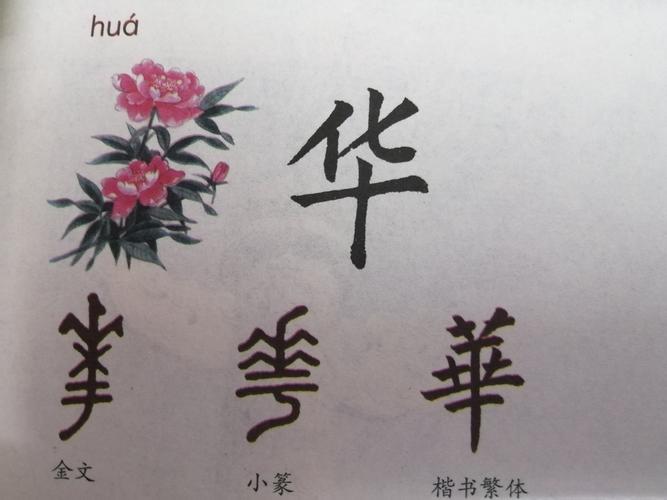 huá
华
華
金文
小篆
楷书繁体